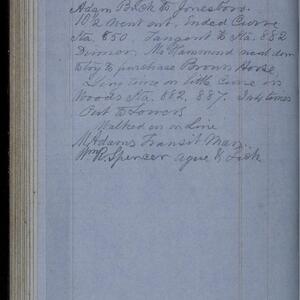 Adam Back to Jonesboro.
10½ Went out. Ended Curve
Sta. 850. Tangent to Sta. 882
Dinner. Mr Hammond went down
to try to purchase Brown Horse,
Line on little Curve in
Woods Sta. 882, 887.
Out to Towers
Walked on on Line
M Adams Transit Man.
Wm R. Spencer ague & Sick